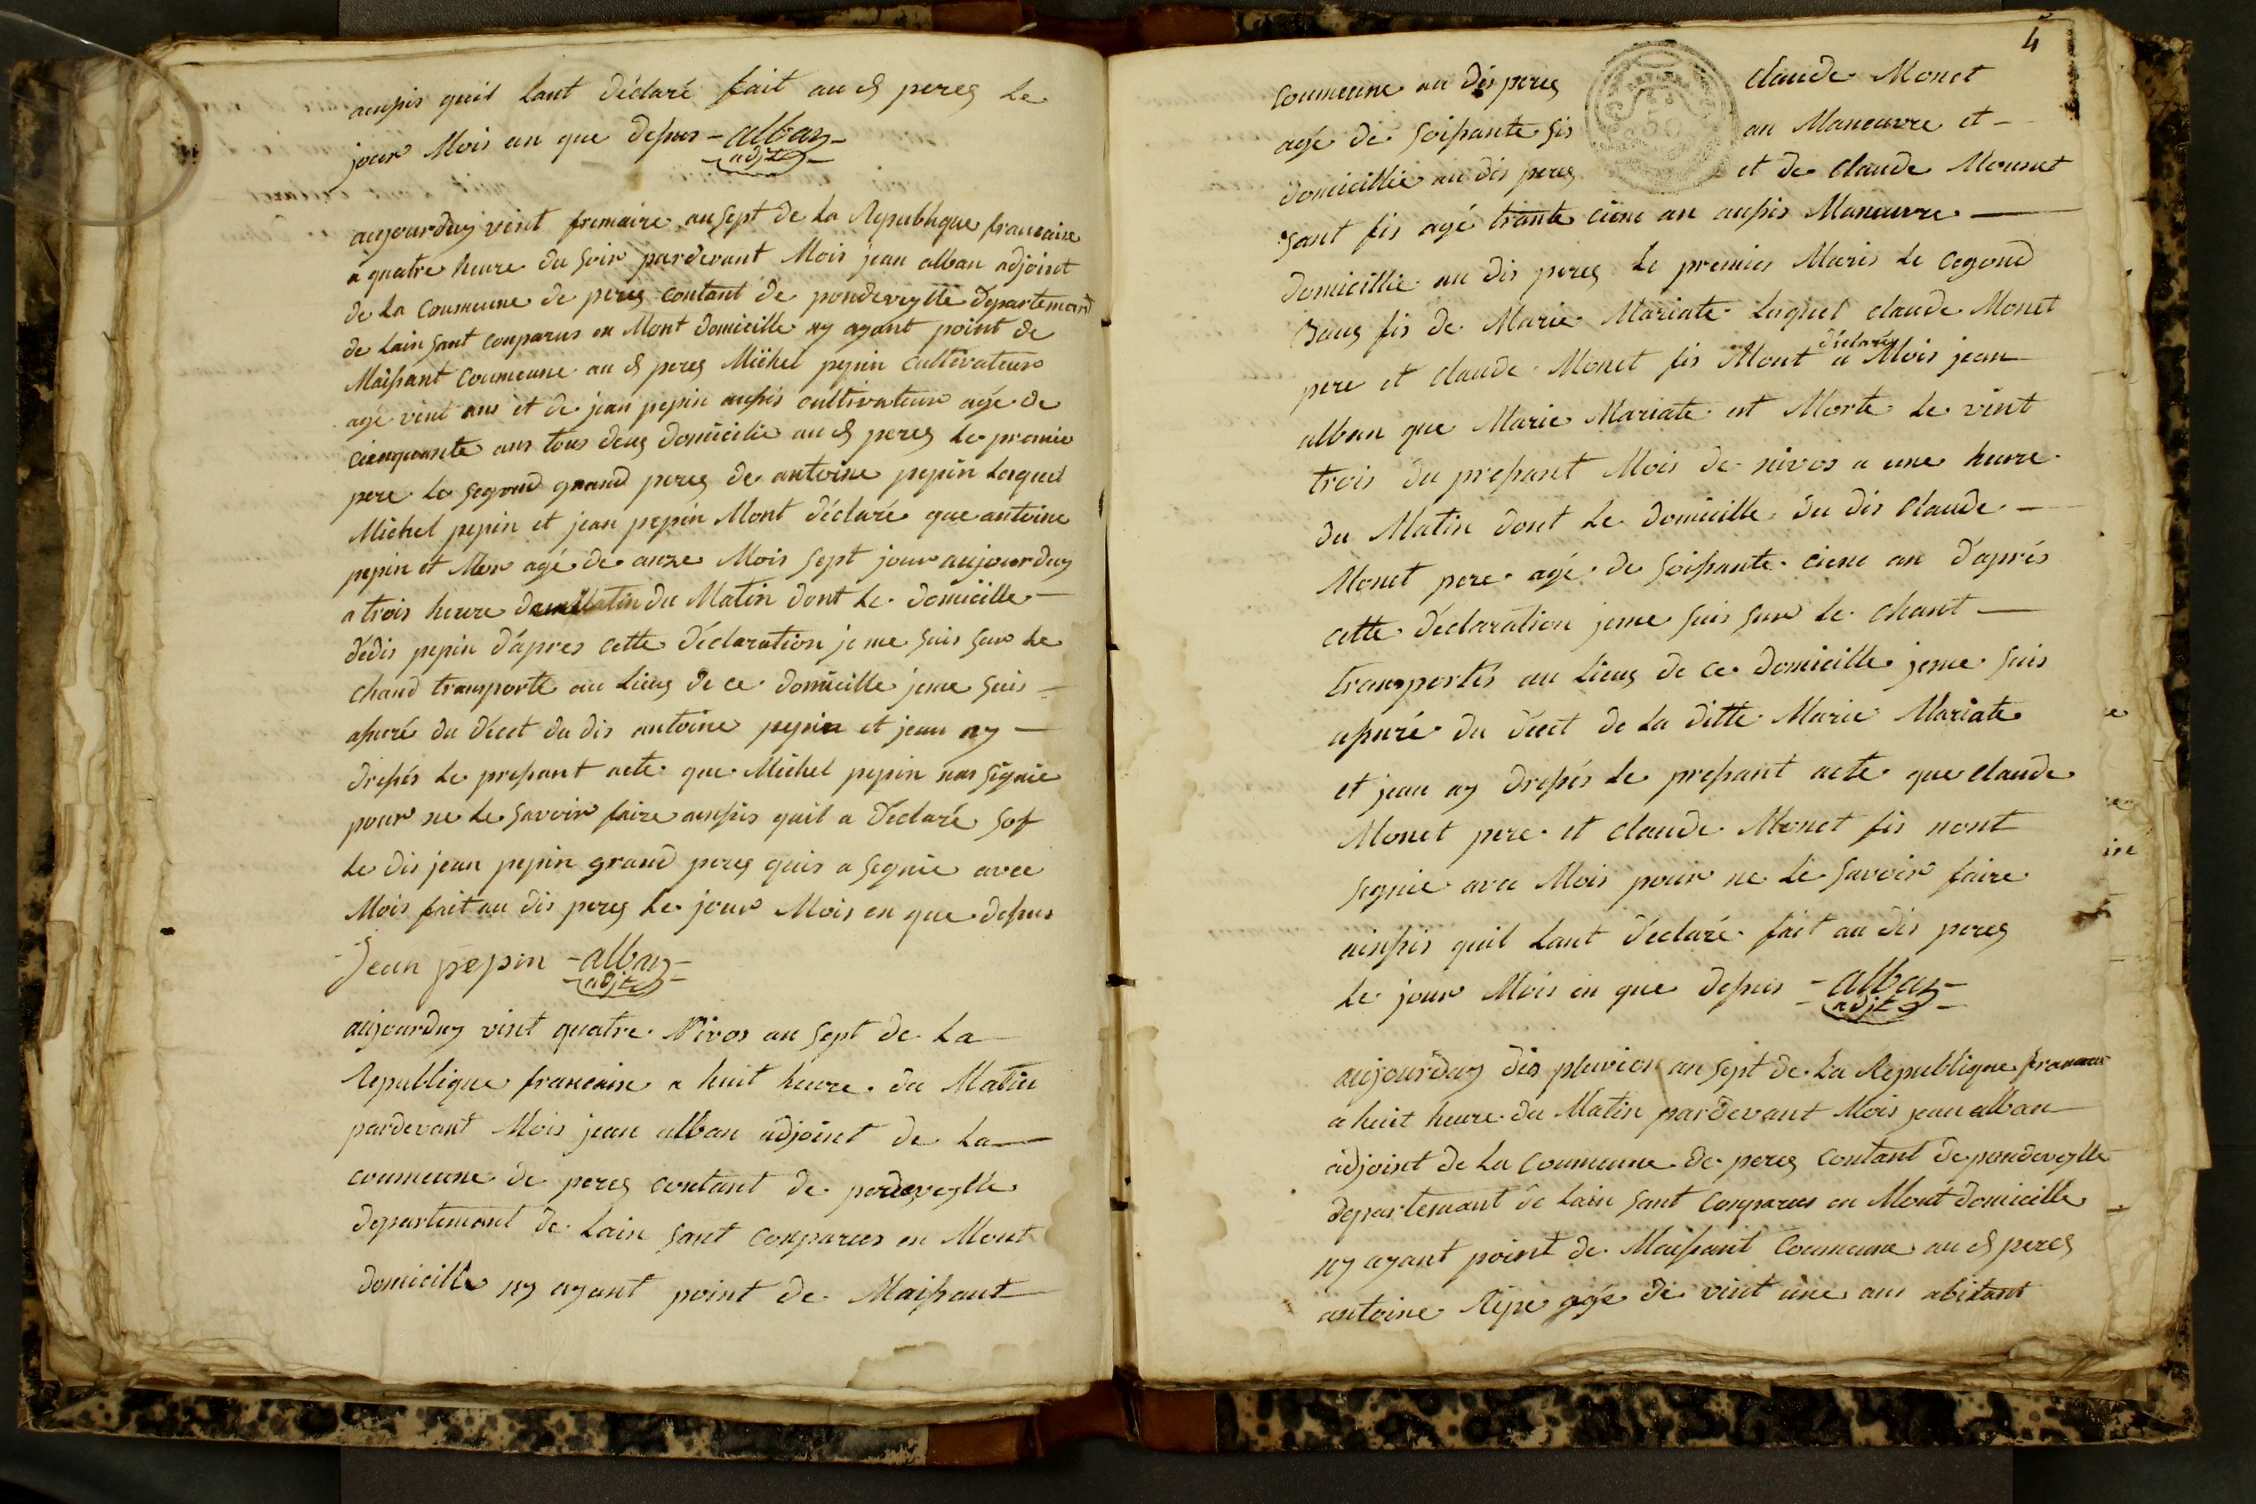 ainsis quil lant déclaré fait au d perez le
jour Mois an que desus - alban -
adjt
aujourduy vint frimaire an sept de la Republique francaise
a quatre heure du soir pardevant Mois jean alban adjoint
de la Coumeune de perez contant de pondeveylle departemant
de lain sant conparus en Mont domicille ny ayant point de
Maissant Coumeune au d perez Michel pepin cultivateur
agé vint ans et de jean pepin aussis cultivateur agé de
cienquante ans tous deuz domicilié au d perez le premie
pere le segond grand perez de antoine pepin lequel
Michel pepin et jean pepin Mont déclaré que antoine
pepin et Mor agé de onze Mois sept jour aujourduy
a trois heure du Matin dont le domicille
dédis pepin dápres cette déclaration je me suis sur le
chand transporté au lieuz de ce domicille jeme suis
assuré du décet du dis antoine pepin et jean ay
dressés le pressant acte que Michel pepin nas signie
pour ne le savoir faire ainssis quil a déclaré sof
le dis jean pepin grand perez quis a segnie avec
Mois fait au dis perez le jour Mois en que dessus
Jean pepin - alban -
adjt
aujourduy vint quatre Nivos an sept de la
Republique francaise a huit heure du Matin
pardevant Mois jean alban adjoint de la
coumeune de perez contant de pondeveylle
departemant de lain sant conparus en Mont
domicille ny ayant point de Maissant
4
Coumeune au dis perez claude Monet
agé de soissante sis an Maneuvre et
domicillié au dis perez et de claude Monnet
sant fis agé trante cienc an aussis Maneuvre
domicillié au dis perez le premies Maris le cegond
baus fis de Marie Mariate lequel claude Monet
pere et claude Monet fis Mont déclaré a Mois jean
alban que Marie Mariate est Morte le vint
trois du pressant Mois de nivos a une heure
du Matin dont le domicille du dis Claude
Monet pere agé de soissante cienc an d'aprés
cette déclaration jeme suis sur le chant
transportés au lieuz de ce domicille jeme suis
assuré du décet de la ditte Marie Mariate
et jean ay dressés le pressant acte que claude
Monet pere et claude Monet fis nont
segnie avec Mois pour ne le savoir faire
ainssis quil lant déclaré fait au dis perez
le jour Mois en que dessus - alban -
adjt
aujourduy dis pluvios an sept de la Republique francaise
a huit heure du Matin pardevant Mois jean alban
adjoint de la Coumeune de perez contant de pondeveylle
departemant de lain sant conparus en Mont domicille
ny ayant point de Maissant Coumeune au d perez
antoine Ripe agé de vint une ans abitant